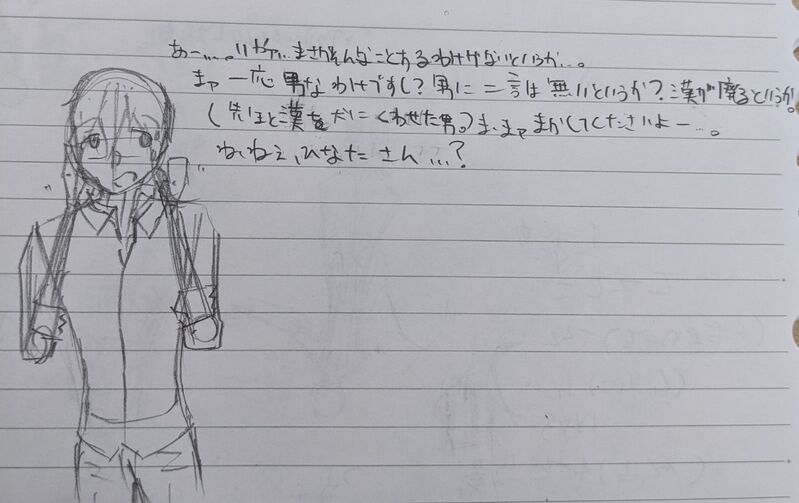 あー…。いやァ、まさかそんなことあるわけないというか…。
まァ一応男なわけですし?男に二言は無いというか?漢が廃るというか。
(先ほど漢を犬にくわせた男。)ま、まァまかしてくださいよー…。
ね、ねぇ、ひなたさん…?